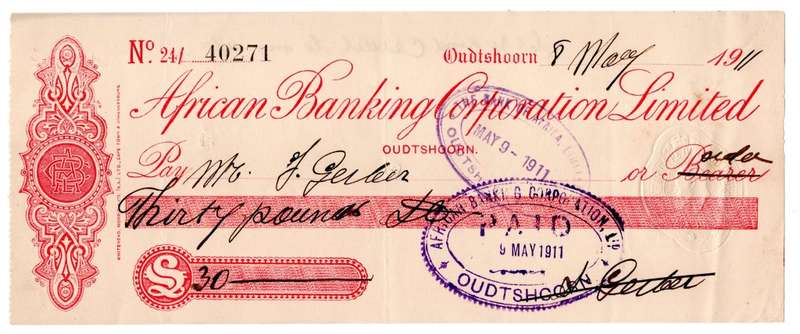 No. 24/ 40271
Oudtshoorn 8 May 1911
African Banking Corporation Limited
OUDTSHOORN.
Pay Mr. J. Gerber or Bearer order
Thirty pounds
£ 30
THE BANK OF AFRICA, LIMITED
MAY 9 - 1911
OUDTSHOORN
AFRICAN BANKING CORPORATION, LTD
PAID
9 MAY 1911
OUDTSHOORN
Gerber